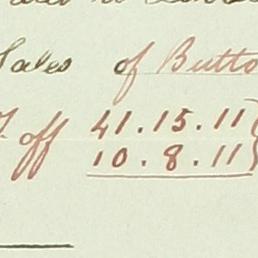 Sales of Butto
off 41.15.11
10.8.11